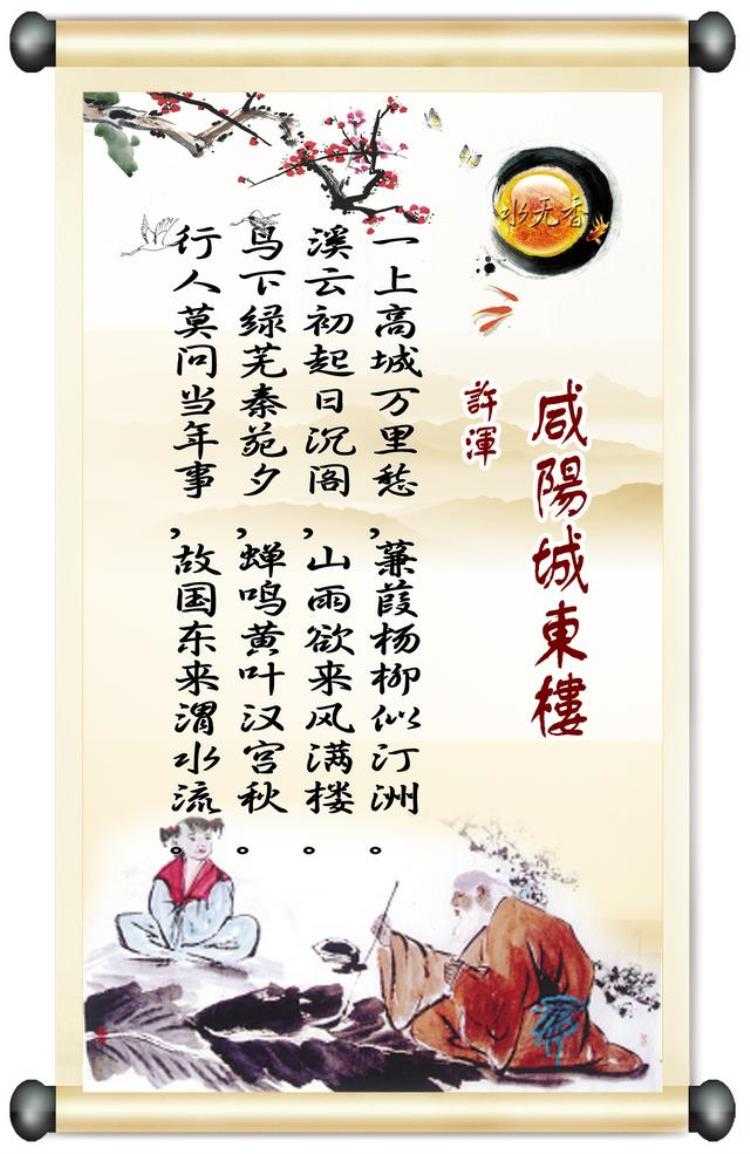 咸陽城東樓
許渾
一上高城万里愁，蒹葭杨柳似汀洲。
溪云初起日沉阁，山雨欲来风满楼。
鸟下绿芜秦苑夕，蝉鸣黄叶汉宫秋。
行人莫问当年事，故国东来渭水流。
水无香